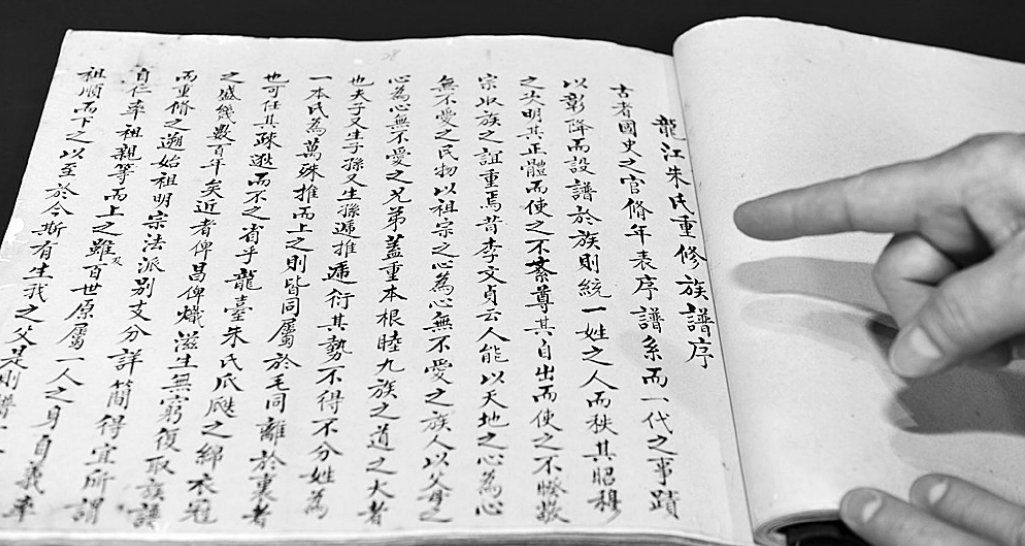 龍江朱氏重修族譜序
古者國史之官脩年表序譜系而一代之事蹟
以彰降而設譜於族則統一姓之人而秩其昭穆
之次明其正體而使之不紊尊其自出而使之不暌敬
宗收族之誼重焉昔李文貞云人能以天地之心為心
無不愛之民物以祖宗之心為心無不愛之族人以父母之
心為心無不愛之兄弟蓋重本根睦九族之道之大者
也夫子又生子孫又生孫遞推遞衍其勢不得不分姓為
一本氏為萬殊推而上之則皆同屬於毛同離於裏者
也可任其疎逖而不之省乎龍臺朱氏瓜瓞之綿衣冠
之盛幾數百年矣近者俾昌俾熾滋生無窮復取族譜
而重脩之遡始祖明宗法派別支分詳簡得宜所謂
自仁率祖親等而上之雖百世原屬一人之身自義率
祖順而下之以至於今斯有生我之父是則譜